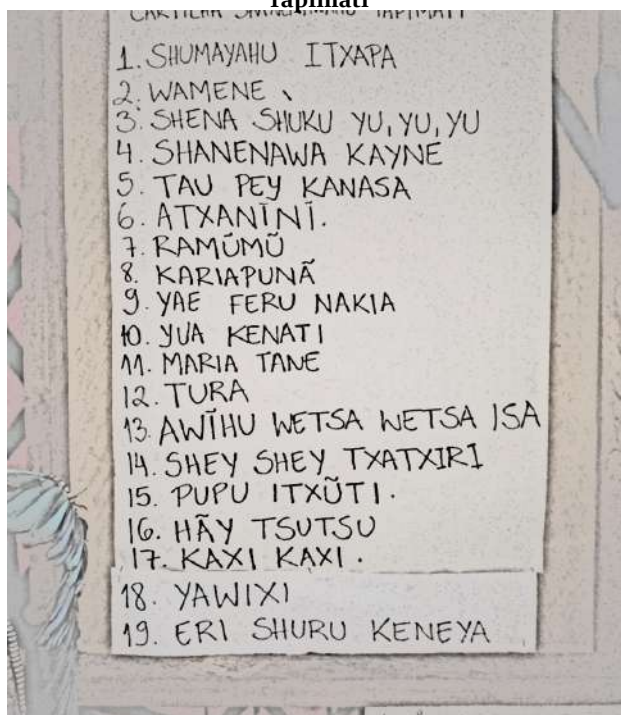 Tapimati
CARTILHA SHANENAWAHU TAPIMATI
1. SHUMAYAHU ITXAPA
2. WAMENE
3. SHENA SHUKU YU, YU, YU
4. SHANENAWA KAYNE
5. TAU PEY KANASA
6. ATXANĨNĨ.
7. RAMŨMŨ
8. KARIAPUNÃ
9. YAE FERU NAKIA
10. YUA KENATI
11. MARIA TANE
12. TURA
13. AWĨHU WETSA WETSA ISA
14. SHEY SHEY TXATXIRI
15. PUPU ITXŨTI.
16. HÃY TSUTSU
17. KAXI KAXI.
18. YAWIXI
19. ERI SHURU KENEYA